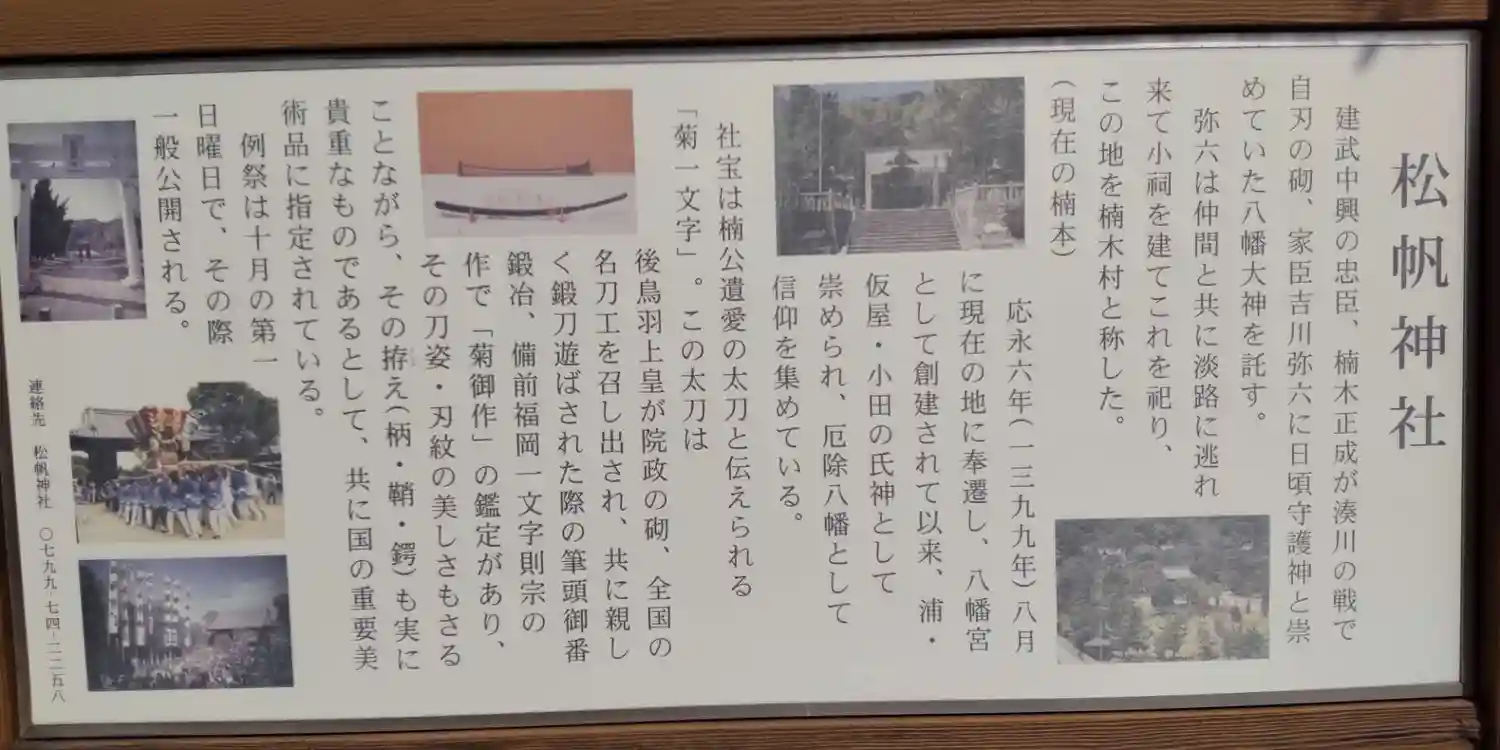 松帆神社
建武中興の忠臣、楠木正成が湊川の戦で
自刃の砌、家臣吉川弥六に日頃守護神と崇
めていた八幡大神を託す。
弥六は仲間と共に淡路に逃れ
来て小祠を建てこれを祀り、
この地を楠木村と称した。
(現在の楠本)
応永六年(一三九九年)八月
に現在の地に奉遷し、八幡宮
として創建されて以来、浦・
仮屋・小田の氏神として
崇められ、厄除八幡として
信仰を集めている。
社宝は楠公遺愛の太刀と伝えられる
「菊一文字」。この太刀は
後鳥羽上皇が院政の砌、全国の
名刀工を召し出され、共に親し
く鍛刀遊ばされた際の筆頭御番
鍛冶、備前福岡一文字則宗の
作で「菊御作」の鑑定があり、
その刀姿・刃紋の美しさもさる
ことながら、その拵え(柄・鞘・鍔)も実に
貴重なものであるとして、共に国の重要美
術品に指定されている。
例祭は十月の第一
日曜日で、その際
一般公開される。
連絡先 松帆神社 〇七九九-七四-二二五八